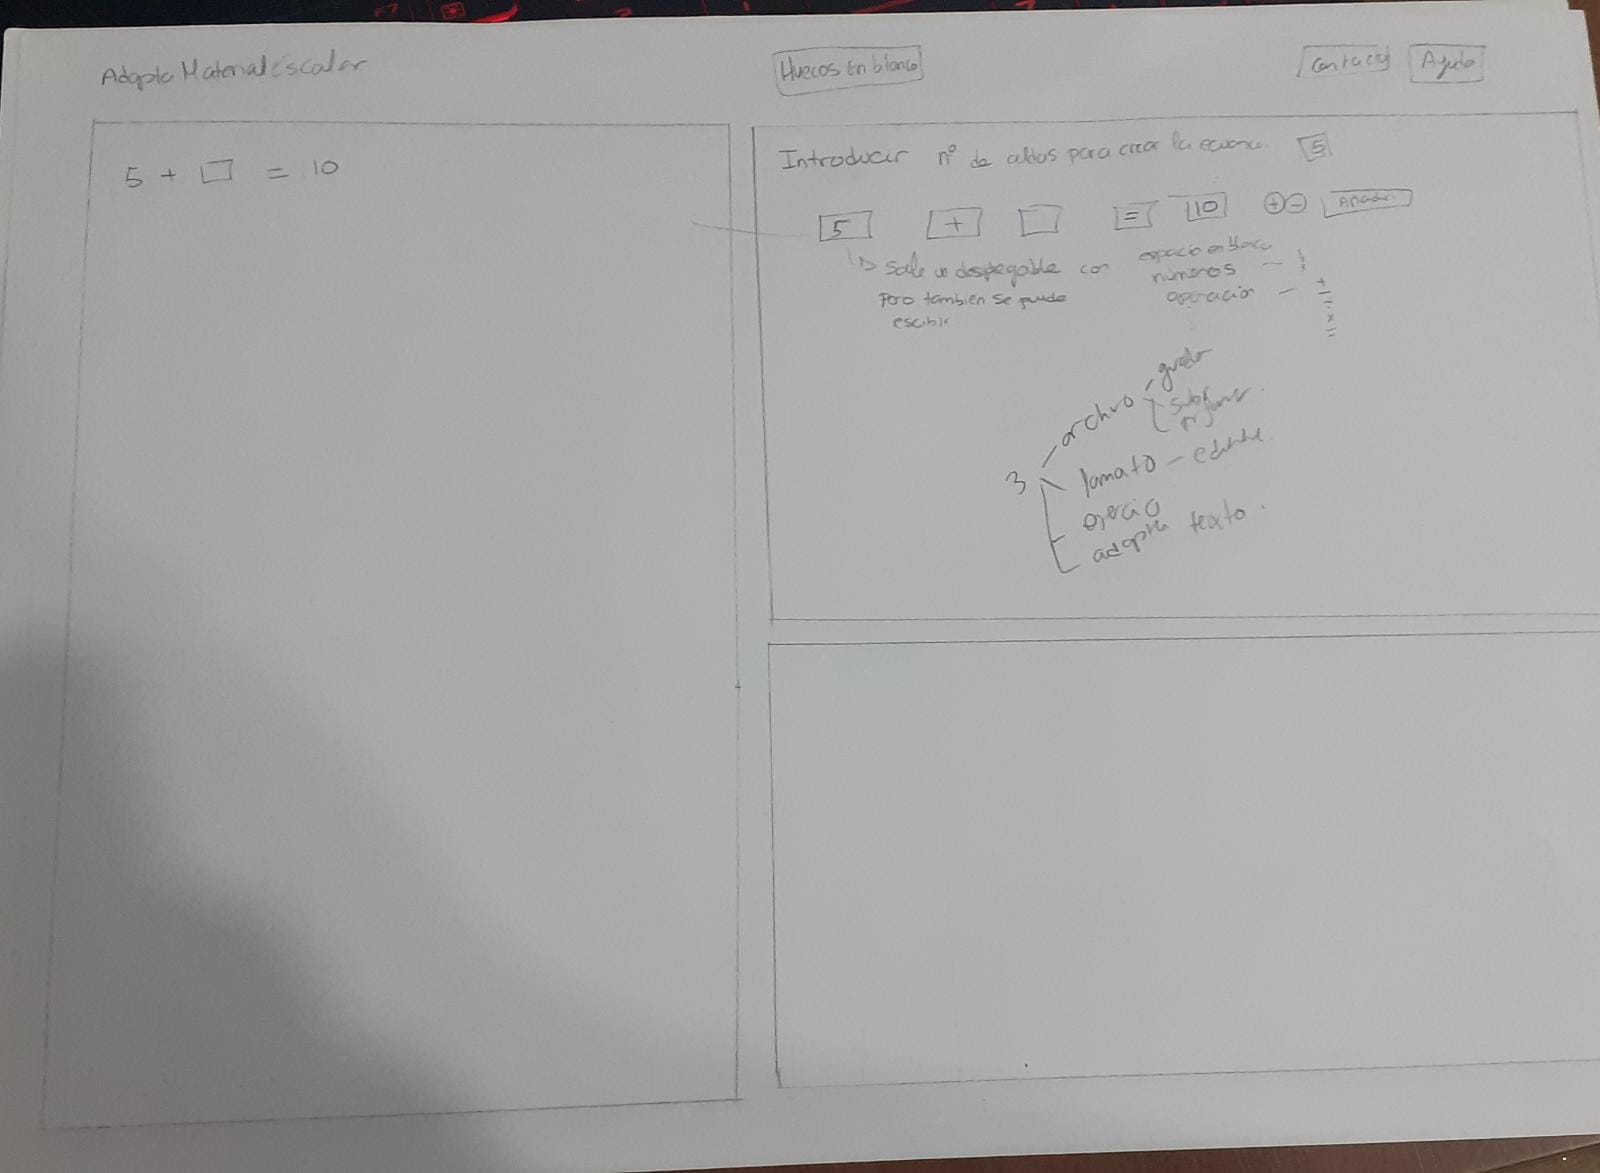 Adapta Material escolar
Huecos En blanco
Ayuda
5 + □ = 10
Introducir nº de celdas para crear la 5
5 + □ = 10 + - Añadir
Sale un despegable con espacio en blanco
números
operación
+
-
÷
x
=
Pero tambien se puede
escribir
3
archivo
subir
ejercicio
adapta texto